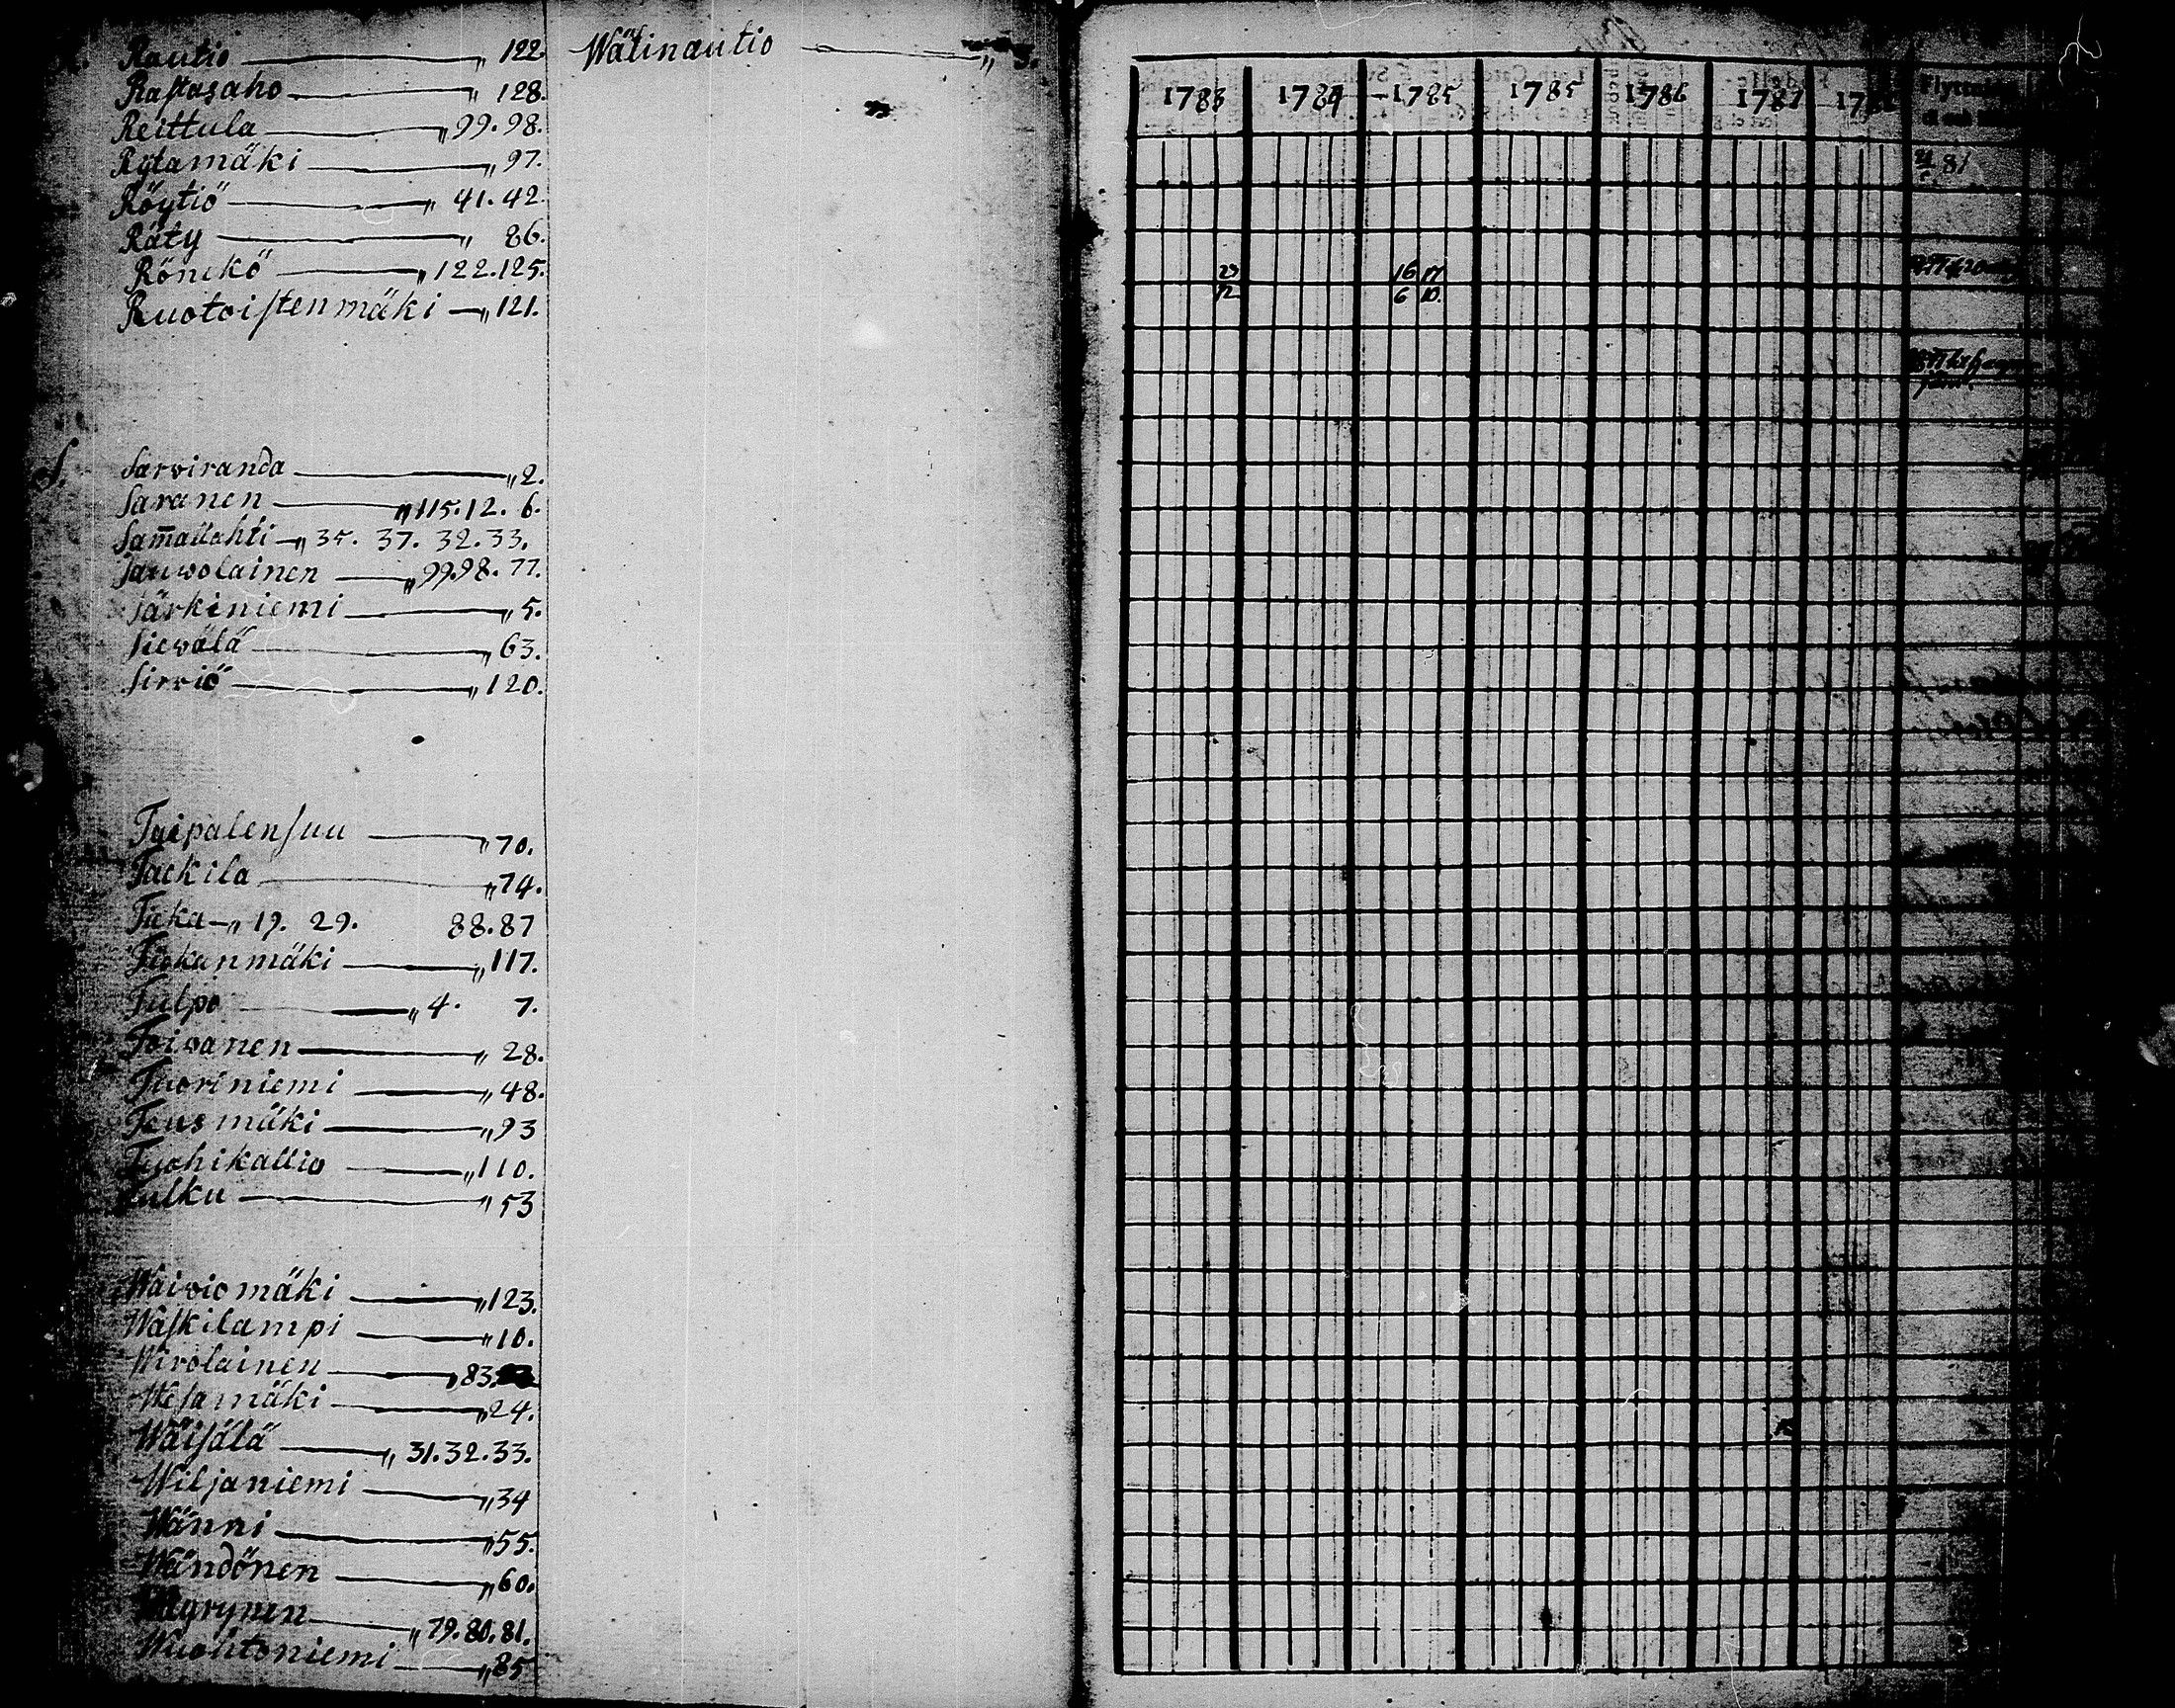 Rautio „ 122.
Rastasaho „ 128.
Reittula „ 99. 98.
Rytamäki „ 97.
Röytiö „ 41. 42.
Räty „ 86.
Rönckö „ 122. 125.
Ruotoistenmäki „ 121.
S.
Sarviranda „ 2.
Saranen „ 115. 12. 6.
Sam̅allahti „ 35. 37. 32. 33.
Sauwolainen „ 99. 98. 77.
Särkiniemi „ 5.
Siewälä „ 63.
Sirviö „ 120.
Taipalensuu „ 70.
Tackila „ 74.
Ticka „ 19. 29. 88. 87
Tickanmäki „ 117.
Tulpo „ 4. 7.
Toivanen „ 28.
Tuoriniemi „ 48.
Teusmäki „ 93
Tuohikallio „ 110.
Tulku „ 53
Waiviomäki „ 123.
Waskilampi „ 10.
Wirolainen „ 83.
Wesamäki „ 24.
Wäisälä „ 31. 32. 33.
Wiljaniemi „ 34
Wänni „ 55.
Wändönen „ 60.
„ 79. 80. 81.
Wuohtoniemi „ 85
Wätinautio „ 3.
1783 1784 1785 1785 1786 1787
81
23 16 17
12 6 10.